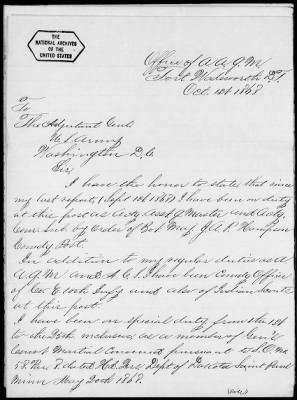 THE
NATIONAL ARCHIVES
OF THE
UNITED STATES
Office of A.A.Q.M.
Fort Wadsworth D.T.
Oct. 1st 1867
To
The Adjutant Genl.
U.S. Army
Washington D.C.
Sir
I have the honor to state that since
my last report, (Sept 1st 1867) I have been on duty
at this post as Actg Asst Q Master and Actg
Com: Sub by Order of Bvt Maj J.A.P. Hampson
Comdg Post.
In addition to my regular duties as A.
A.Q.M. and A.C.S. I have been Comdg Officer
of Co: E 10th Infy and also of Indian Scouts
at this post.
I have been on special duty from the 1st
to the 25th inclusive, as a member of Genl
Court Martial Convened pursuant to S.O. No
58 Par 8 dated Hd. Qrs. Dept of Dakota Saint Paul
Minn May 20th 1867.